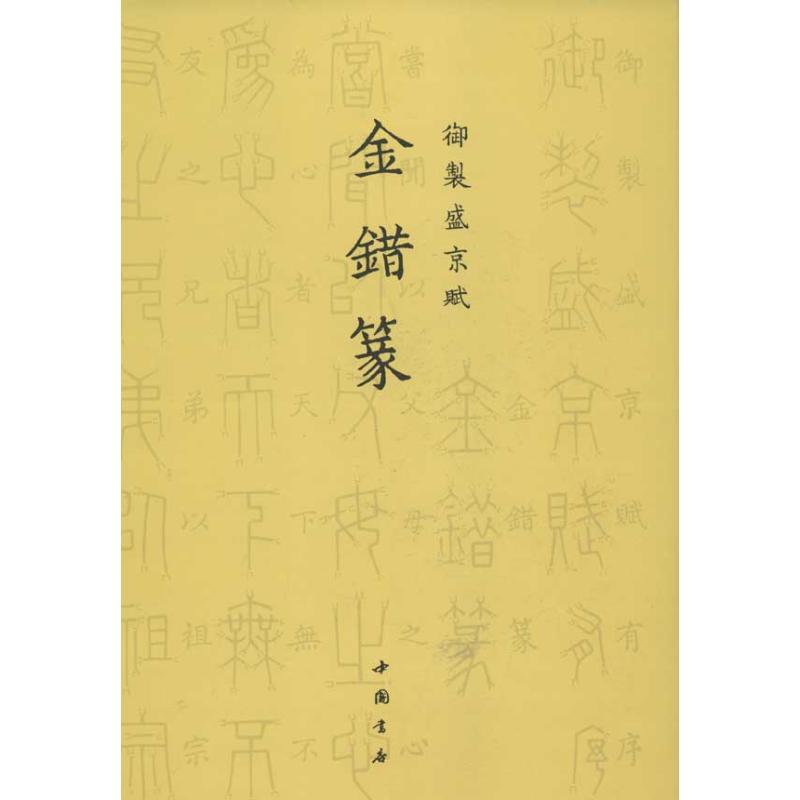 御製盛京賦
金錯篆
中國書店
御製盛京賦有序
金錯篆
嘗聞以父母之心
為心者天下無不
友之兄弟以祖宗